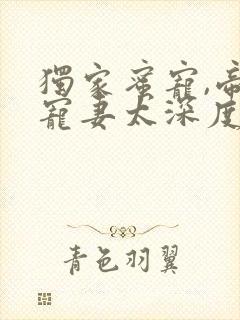 獨家蜜寵,帝
寵妻太深度
青色羽翼